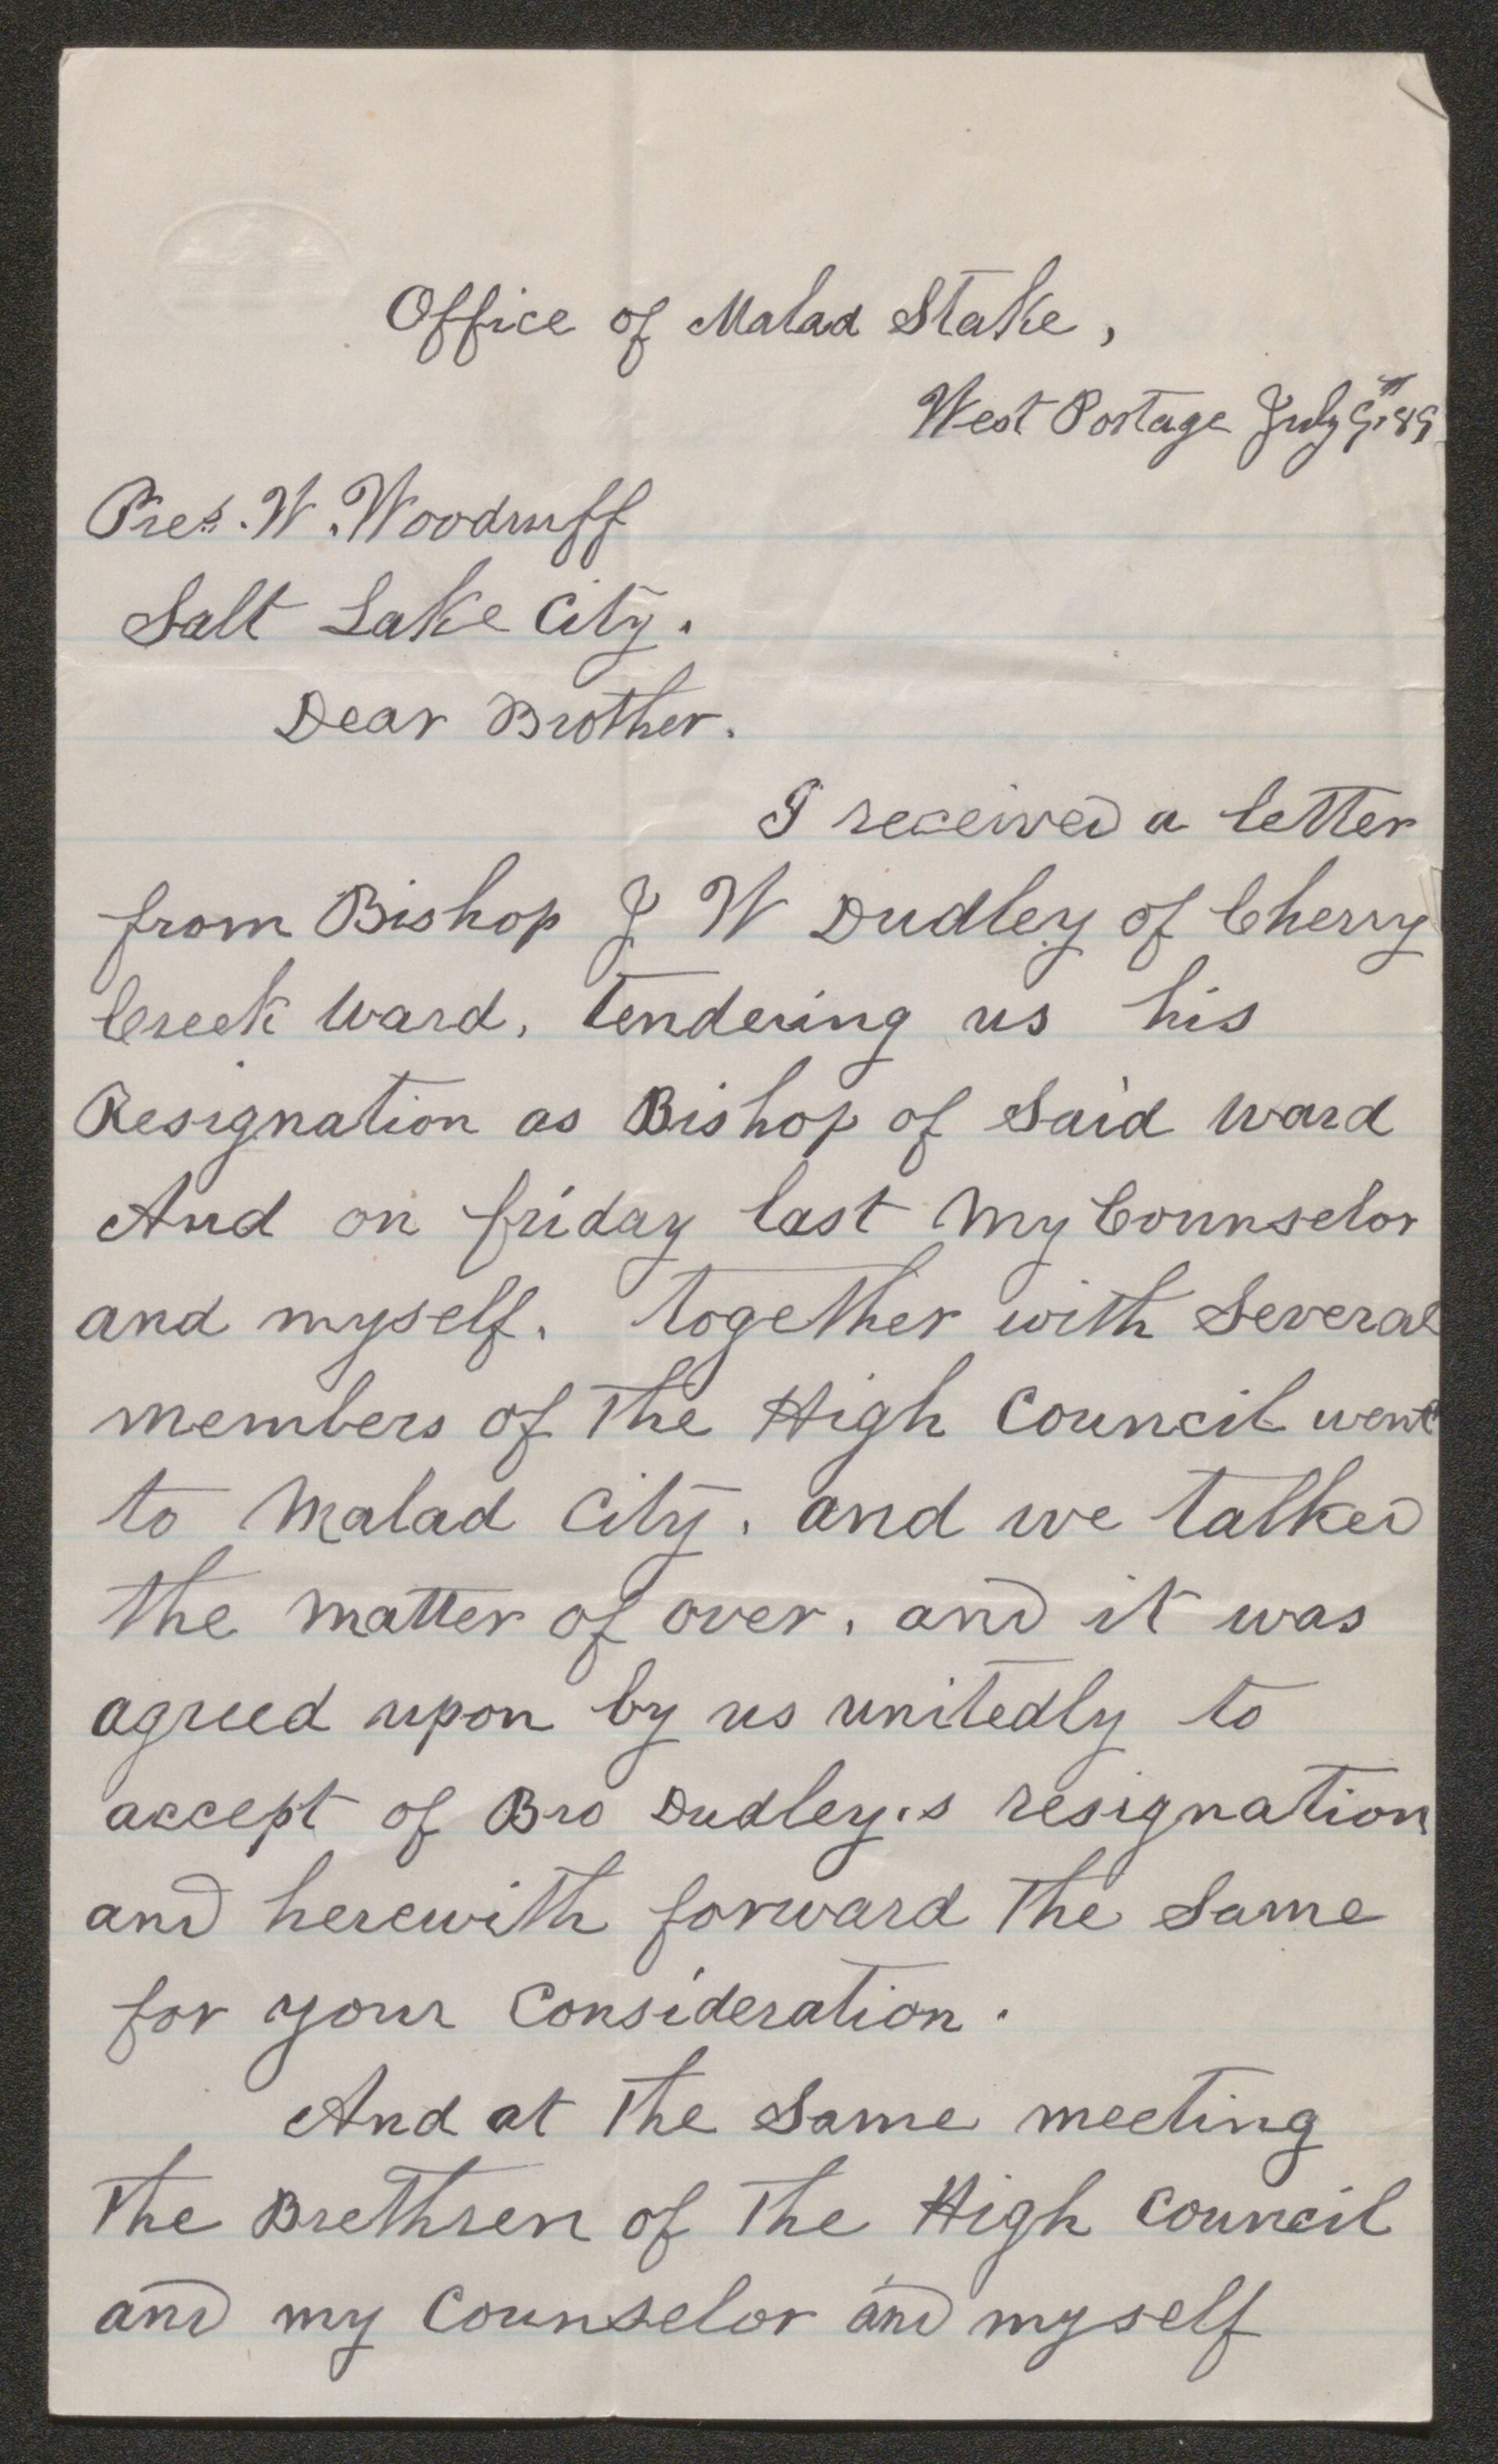 Office of Malad Stake,
West Portage July 9th 89
Pres. W. Woodruff
Salt Lake City.
Dear Brother.
I received a letter
from Bishop J W Dudley of Cherry
Creek Ward, tendering us his
Resignation as Bishop of Said Ward
And on friday last My Counselor
and myself. together with Several
members of the High Council went
to Malad City. and we talked
the matter of over. and it was
agreed upon by us unitedly to
accept of Bro Dudley.s resignation
and herewith forward the Same
for your Consideration.
And at the Same meeting
the Brethren of the High Council
and my Counselor and myself